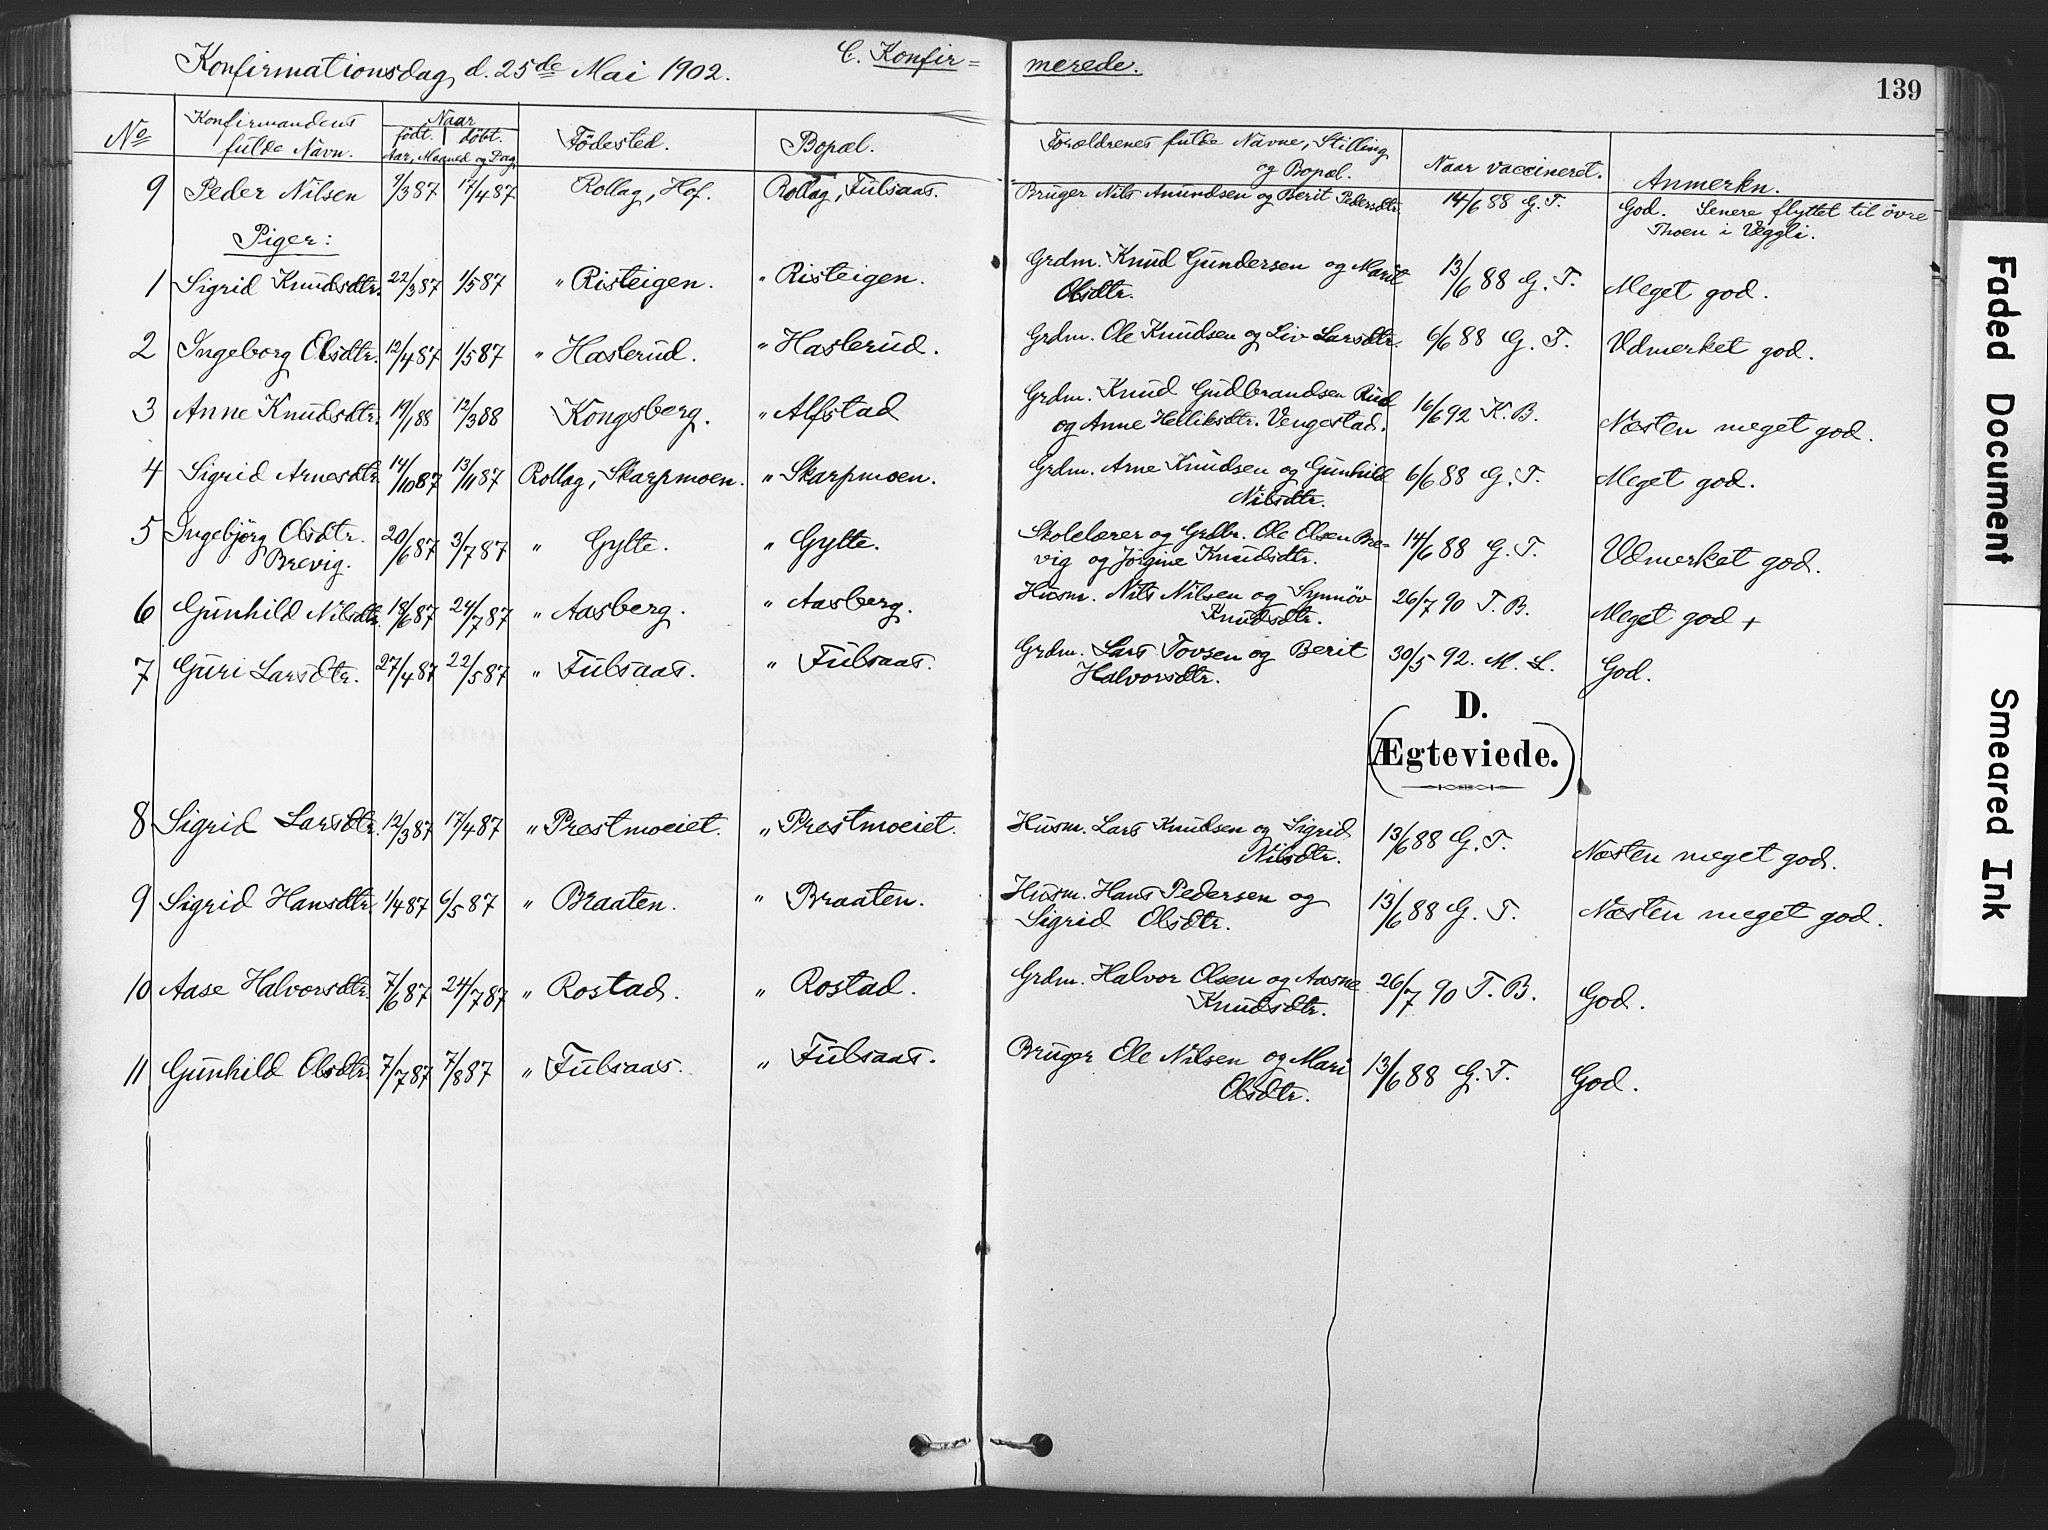 Konfirmationsdag d. 25de Mai 1902.
C. Konfir=
merede.
139
No
Konfirmandens fulde Navn.
Naar
født. døbt.
Aar, Maaned og Dag
Fødested.
Bopæl.
Forældrenes fulde Navne, Stilling
og Bopæl.
Naar vaccineret.
Anmerkn.
9 Peder Nilsen 9/3 87 17/4 87 Rollag, Hof. Rollag, Fulsaas. Bruger Nils Amundsen og Berit Pedersdtr. 14/6 88 G. T. God. Senere flyttet til övre
Thoen i Veggli.
Piger:
1 Sigrid Knudsdtr. 22/3 87 1/5 87 " Risteigen. " Risteigen. Grdm. Knud Gundersen og Marit
Olsdtr. 13/6 88 G. T. Meget god.
2 Ingeborg Olsdtr. 12/4 87 1/5 87 " Haslerud. " Haslerud. Grdm. Ole Knudsen og Liv Larsdtr. 6/6 88 G. T. Udmerket god.
3 Anne Knudsdtr. 19/1 88 12/3 88 Kongsberg. " Alfstad Grdm. Knud Gudbrandsen Rud
og Anne Helliksdtr. Vengestad. 16/6 92 K. B. Næsten meget god.
4 Sigrid Arnesdtr. 14/10 87 13/11 87 Rollag, Skarpmoen. " Skarpmoen. Grdm. Arne Knudsen og Gunhild
Nilsdtr. 6/6 88 G. T. Meget god.
5 Ingebjörg Olsdtr.
Brevig. 20/6 87 3/7 87 " Gylte. " Gylte. Skolelærer og Grdbr. Ole Olsen Bre-
vig og Jörgine Knudsdtr. 14/6 88 G. T. Udmerket god.
6 Gunhild Nilsdtr. 18/6 87 24/7 87 " Aasberg. " Aasberg. Husm. Nils Nilsen og Synnöv
Knudsdtr. 26/7 90 T. B. Meget god +
7 Guri Larsdtr. 27/4 87 22/5 87 " Fulsaas. " Fulsaas. Grdm. Lars Tovsen og Berit
Halvorsdtr. 30/5 92. M. L. God.
D.
(Ægteviede.)
8 Sigrid Larsdtr. 12/3 87 17/4 87 " Prestmoeiet. " Prestmoeiet. Husm. Lars Knudsen og Sigrid
Nilsdtr. 13/6 88 G. T. Næsten meget god.
9 Sigrid Hansdtr. 1/4 87 6/5 87 " Braaten. " Braaten. Husm. Hans Pedersen og
Sigrid Olsdtr. 13/6 88 G. T. Næsten meget god.
10 Aase Halvorsdtr. 7/6 87 24/7 87 " Rostad. " Rostad. Grdm. Halvor Olsen og Aasne
Knudsdtr. 26/7 90 T. B. God.
11 Gunhild Olsdtr. 7/7 87 7/8 87 " Fulsaas. " Fulsaas. Bruger Ole Nilsen og Mari
Olsdtr. 13/6 88 G. T. God.
Faded Document
Smeared Ink